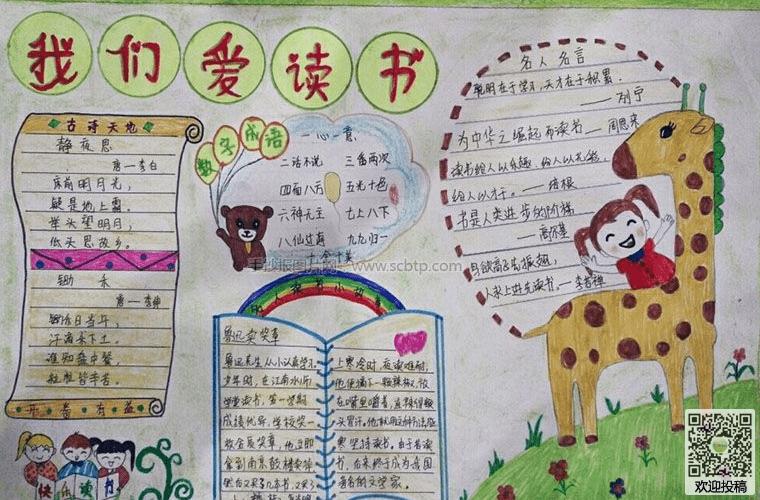 我们爱读书
古诗天地
静夜思
唐一李白
床前明月光，
疑是地上霜。
举头望明月，
低头思故乡。
锄禾
唐一李绅
锄禾日当午，
汗滴禾下土。
谁知盘中餐，
粒粒皆辛苦。
开卷有益
快乐读书
数字成语
一心一意
二话不说 三番两次
四面八方 五光十色
六神无主 七上八下
八仙过海 九九归一
十全十美
手抄报图片网 www.scbtp.com
名人读书小故事
鲁迅卖奖章
鲁迅先生从小认真学习。
少年时，在江南水师
学堂读书，第一学期
成绩优异，学校奖一
枚金质奖章，他立即
拿到南京鼓楼街卖掉
上寒冷时，夜读难耐，
他便摘下一颗辣椒，放
在嘴里嚼着，直辣得额
头冒汗。他就用这种办法驱
寒坚持读书。由于苦读
书，后来终于成为我国
著名的文学家。
名人名言
聪明在于学习，天才在于积累。
——列宁
为中华之崛起而读书——周恩来
读书给人以乐趣，给人以光彩，
给人以才干。——培根
书是人类进步的阶梯。
高尔基
身欲高飞先振翅，
人求上进先读书。——李若禅
欢迎投稿